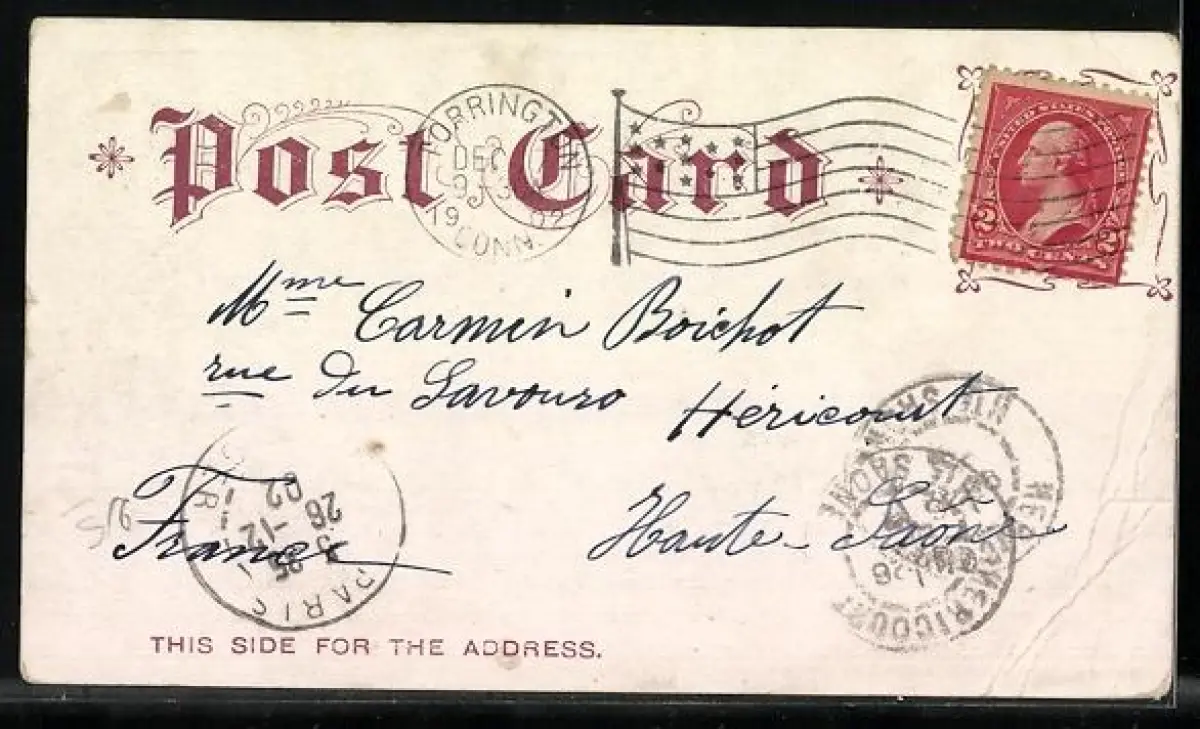 Post Card
TORRINGTON
DEC
1902
CONN.
UNITED STATES POSTAGE
2 2
TWO CENTS
Mme Carmen Boichot
rue du Savouro Héricourt
France
Haute-Saône
PARIS
26 -12
02
HÉRICOURT
THIS SIDE FOR THE ADDRESS.